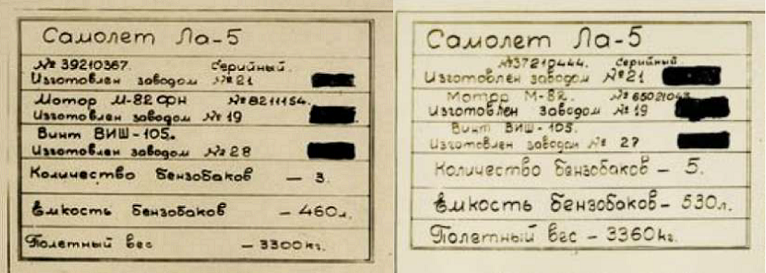 Самолет Ла-5
№ 39210367. Серийный.
Изготовлен заводом №21
Мотор М-82ФН №8211154.
Изготовлен заводом №19
Винт ВИШ-105.
Изготовлен заводом №28
Количество бензобаков – 3.
Емкость бензобаков – 460л.
Полетный вес – 3300кг.
Самолет Ла-5
№37210444. Серийный
Изготовлен заводом №21
Мотор М-82. №65021043
Изготовлен заводом №19
Винт ВИШ-105.
Изготовлен заводом № 27
Количество бензобаков – 5.
Емкость бензобаков – 530л.
Полетный вес – 3360кг.